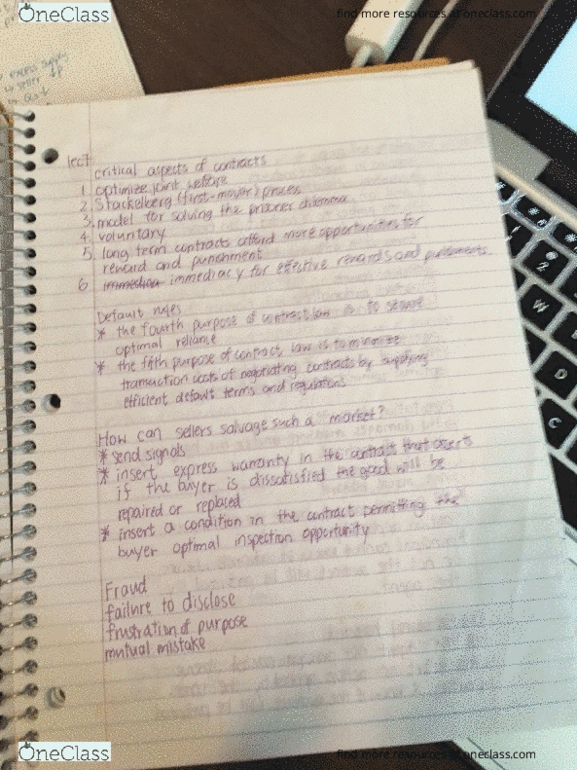 OneClass
find more resources at oneclass.com
excess supply
lec7
critical aspects of contracts
1 optimize joint welfare
2. Stackelberg (first-mover) process
3. model for solving the prisoners dilemma
4. voluntary
5. long term contracts afford more opportunities for
reward and punishment
6 immediacy for effective rewards and punishments
Default rules
* the fourth purpose of contract law is to secure
optimal reliance
* the fifth purpose of contract law is to minimize
transaction costs of negotiating contracts by supplying
efficient default terms and regulations
How can sellers salvage such a market?
* send signals
* insert express warranty in the contract that asserts
if the buyer is dissatisfied the good will be
repaired or replaced
* insert a condition in the contract permitting the
buyer optimal inspection opportunity
Fraud
failure to disclose
frustration of purpose
mutual mistake
OneClass
find more resources at oneclass.com